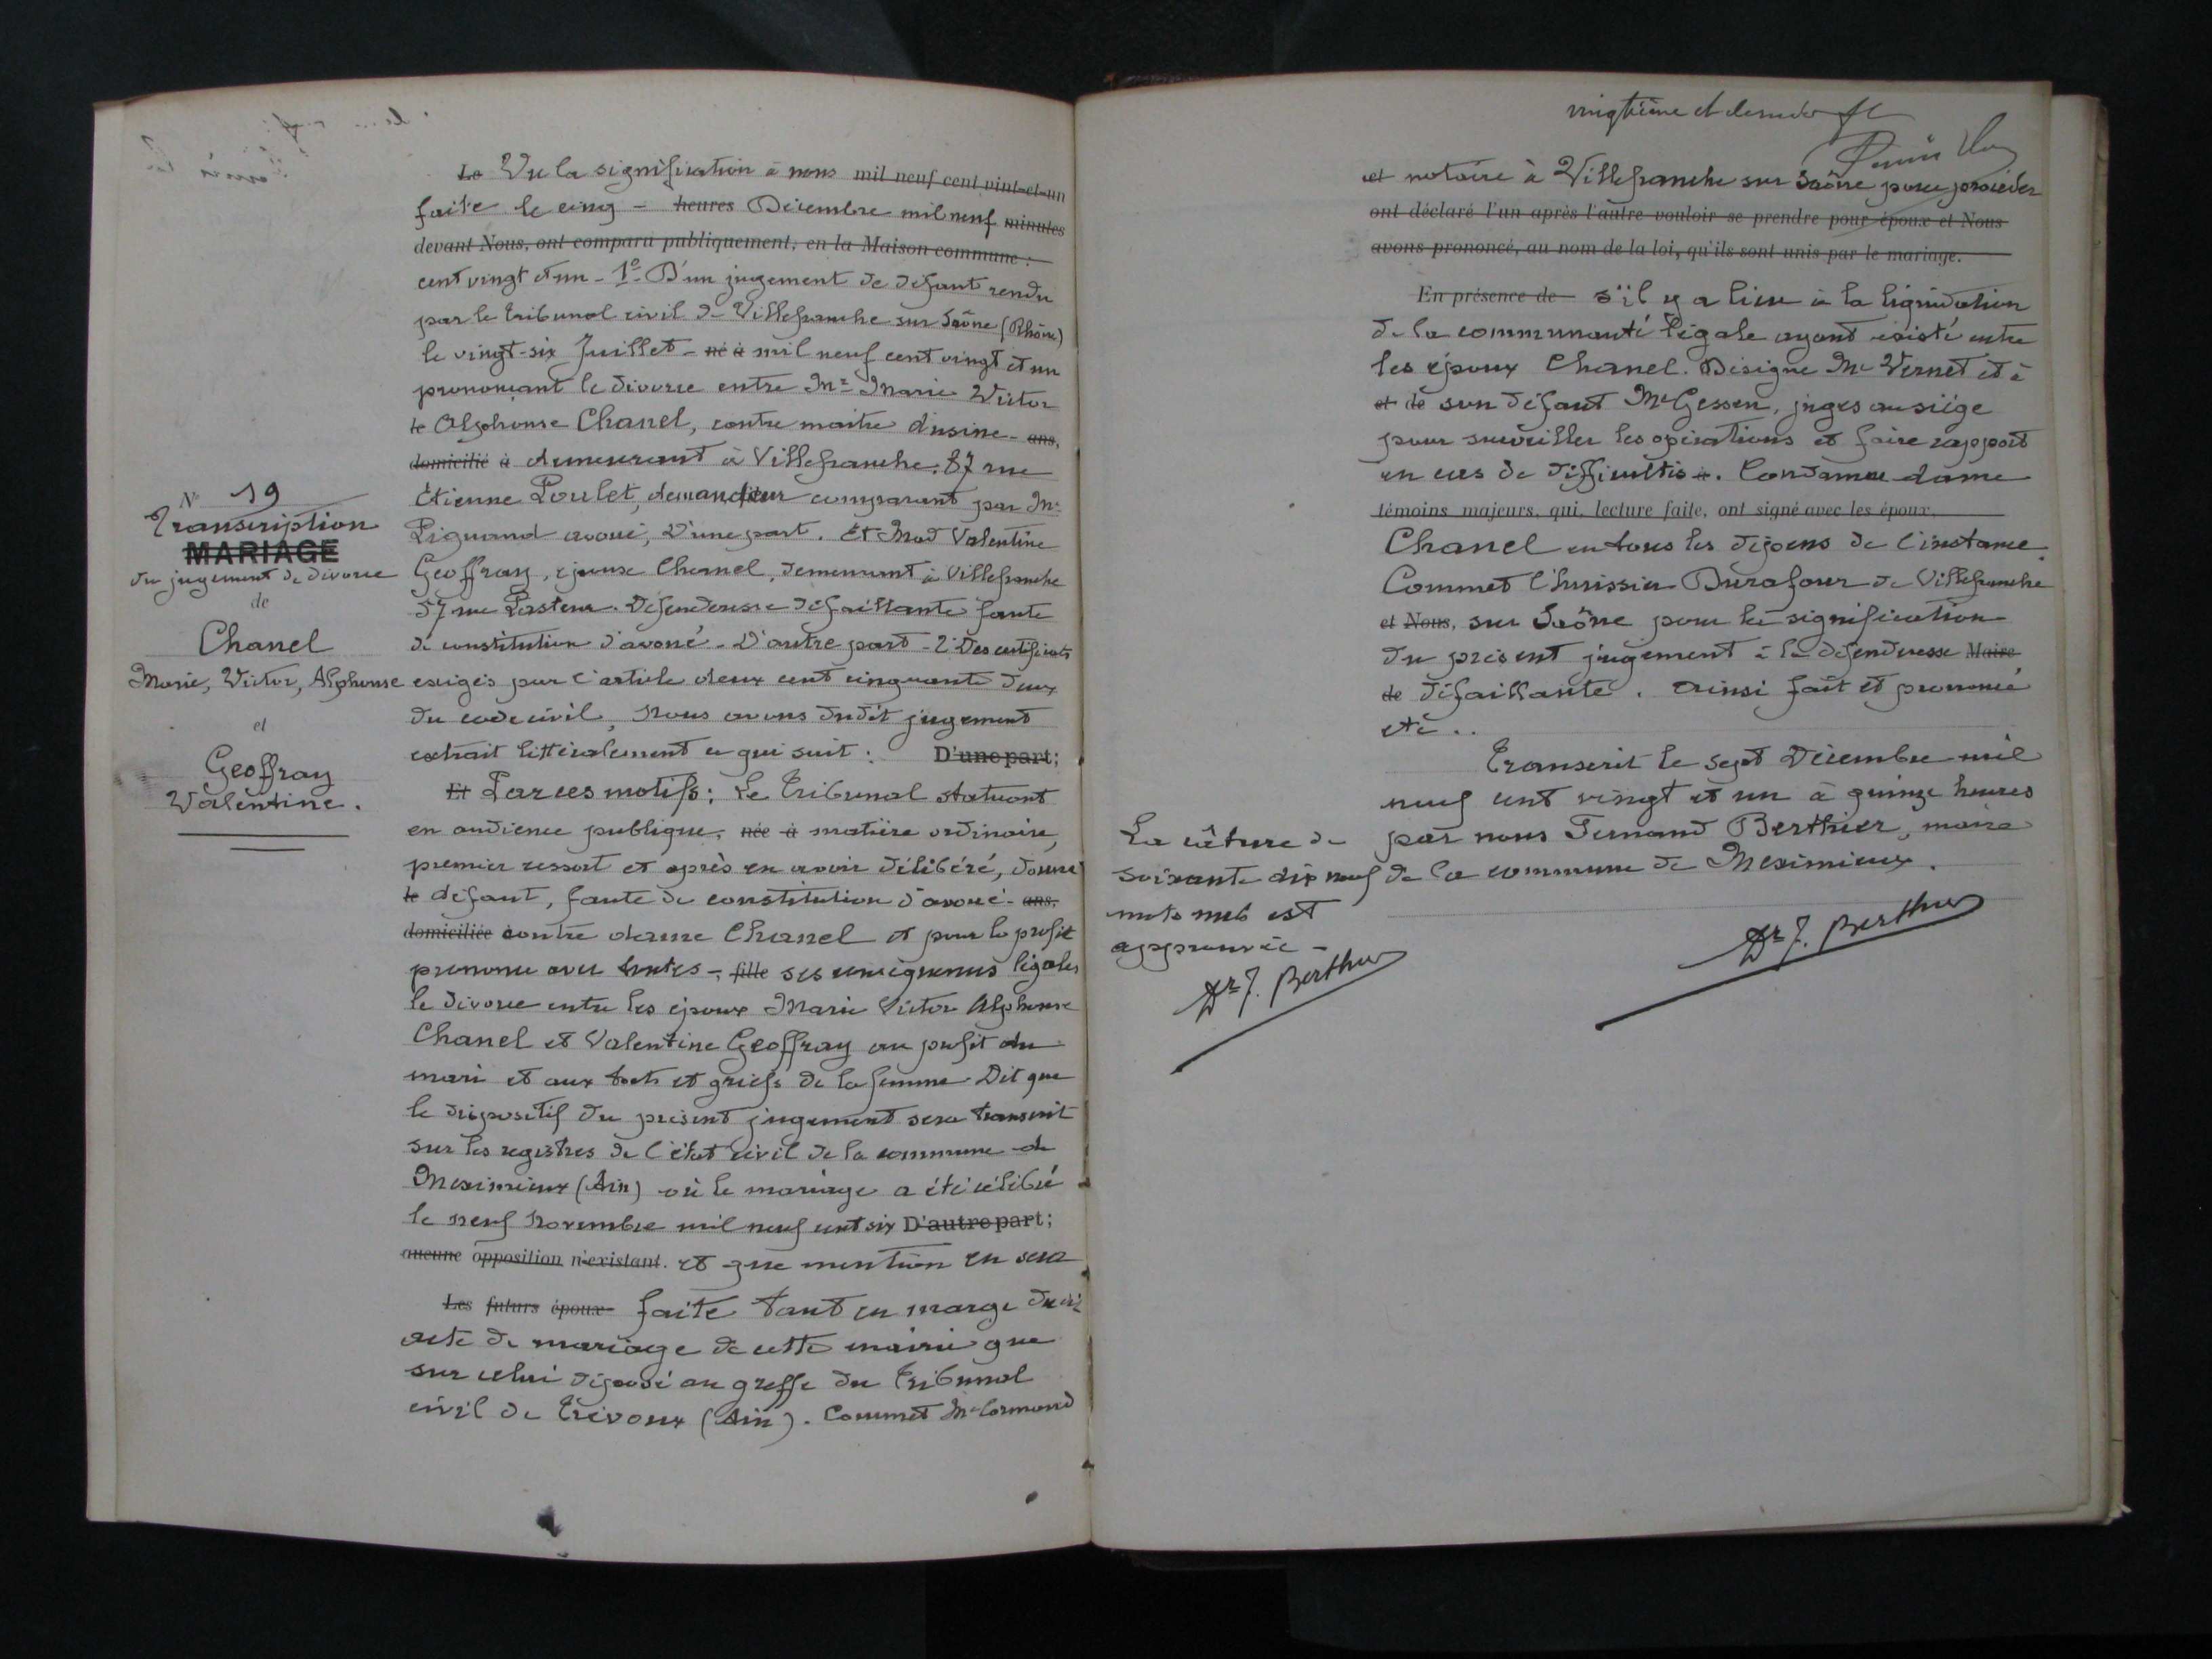 N° 19
Transcription
MARIAGE
du jugement de divorce
de
Chanel
Marie, Victor, Alphonse
et
Geoffray
Valentine.
Le Vu la signification à nous mil neuf cent vint-et-un
faite le cinq - heures Décembre mil neuf minutes
devant Nous, ont comparu publiquement, en la Maison commune :
cent vingt et un - 1° D'un jugement de défaut rendu
par le tribunal civil de Villefranche sur Saône (Rhône)
le vingt-six Juillet - né à mil neuf cent vingt et un
prononçant le divorce entre Mr Marie Victor
le Alphonse Chanel, contre maitre d'usine - ans,
domicilié à demeurant à Villefranche. 87 rue
Étienne Poulet, demandeur comparant par Me
Pignand avoué, d'une part. Et Mad Valentine
Geoffray, épouse Chanel, demeurant à Villefranche
57 rue Pasteur. Défenderesse défaillante faute
de constitution d'avoué - D'autre part - 2° Des certificats
exigés par l'article deux cent cinquante deux
du code civil, Nous avons dudit jugement
extrait littéralement ce qui suit : D'une part;
Et Par ces motifs : Le Tribunal statuant
en audience publique, née à matière ordinaire,
premier ressort et après en avoir délibéré, donne
le défaut, faute de constitution d'avoué - ans.
domiciliée contre dame Chanel et pour le profit
prononce avec toutes -, fille ses conséquences légales
le divorce entre les époux Marie Victor Alphonse
Chanel et Valentine Geoffray au profit du
mari et aux torts et griefs de la femme. Dit que
le dispositif du présent jugement sera transcrit
sur les registres de l'état civil de la commune de
Meximieux (Ain) où le mariage a été célébré
le neuf Novembre mil neuf cent six D'autre part;
aucune opposition n'existant. et que mention en sera
Les futurs époux faite tant en marge du dit
acte de mariage de cette mairie que
sur celui déposé au greffe du Tribunal
civil de Trévoux (Ain). Commet Me Cormond
vingtième et dernier
et notaire à Villefranche sur Saône pour procéder
ont déclaré l'un après l'autre vouloir se prendre pour époux et Nous
avons prononcé, au nom de la loi, qu'ils sont unis par le mariage.
En présence de s'il y a lieu à la liquidation
de la communauté légale ayant existé entre
les époux Chanel. Désigne Mr Vernet et à
et de son défaut Mr Gessen, juges au siége
pour surveiller les opérations et faire rapport
en cas de difficultés à. Condamne dame
témoins majeurs, qui, lecture faite, ont signé avec les époux,
Chanel en tous les dépens de l'instance.
Commet l'huissier Durafour de Villefranche
et Nous, sur Saône pour la signification
du présent jugement à la défenderesse Maire
de défaillante. Ainsi fait et prononcé
etc..
Transcrit le sept Décembre mil
neuf cent vingt et un à quinze heures
par nous Fernand Berthier, maire
de la commune de Meximieux.
Dr F. Berthier
La râture de
soixante dix neuf
mots nuls est
approuvée -
Dr F. Berthier